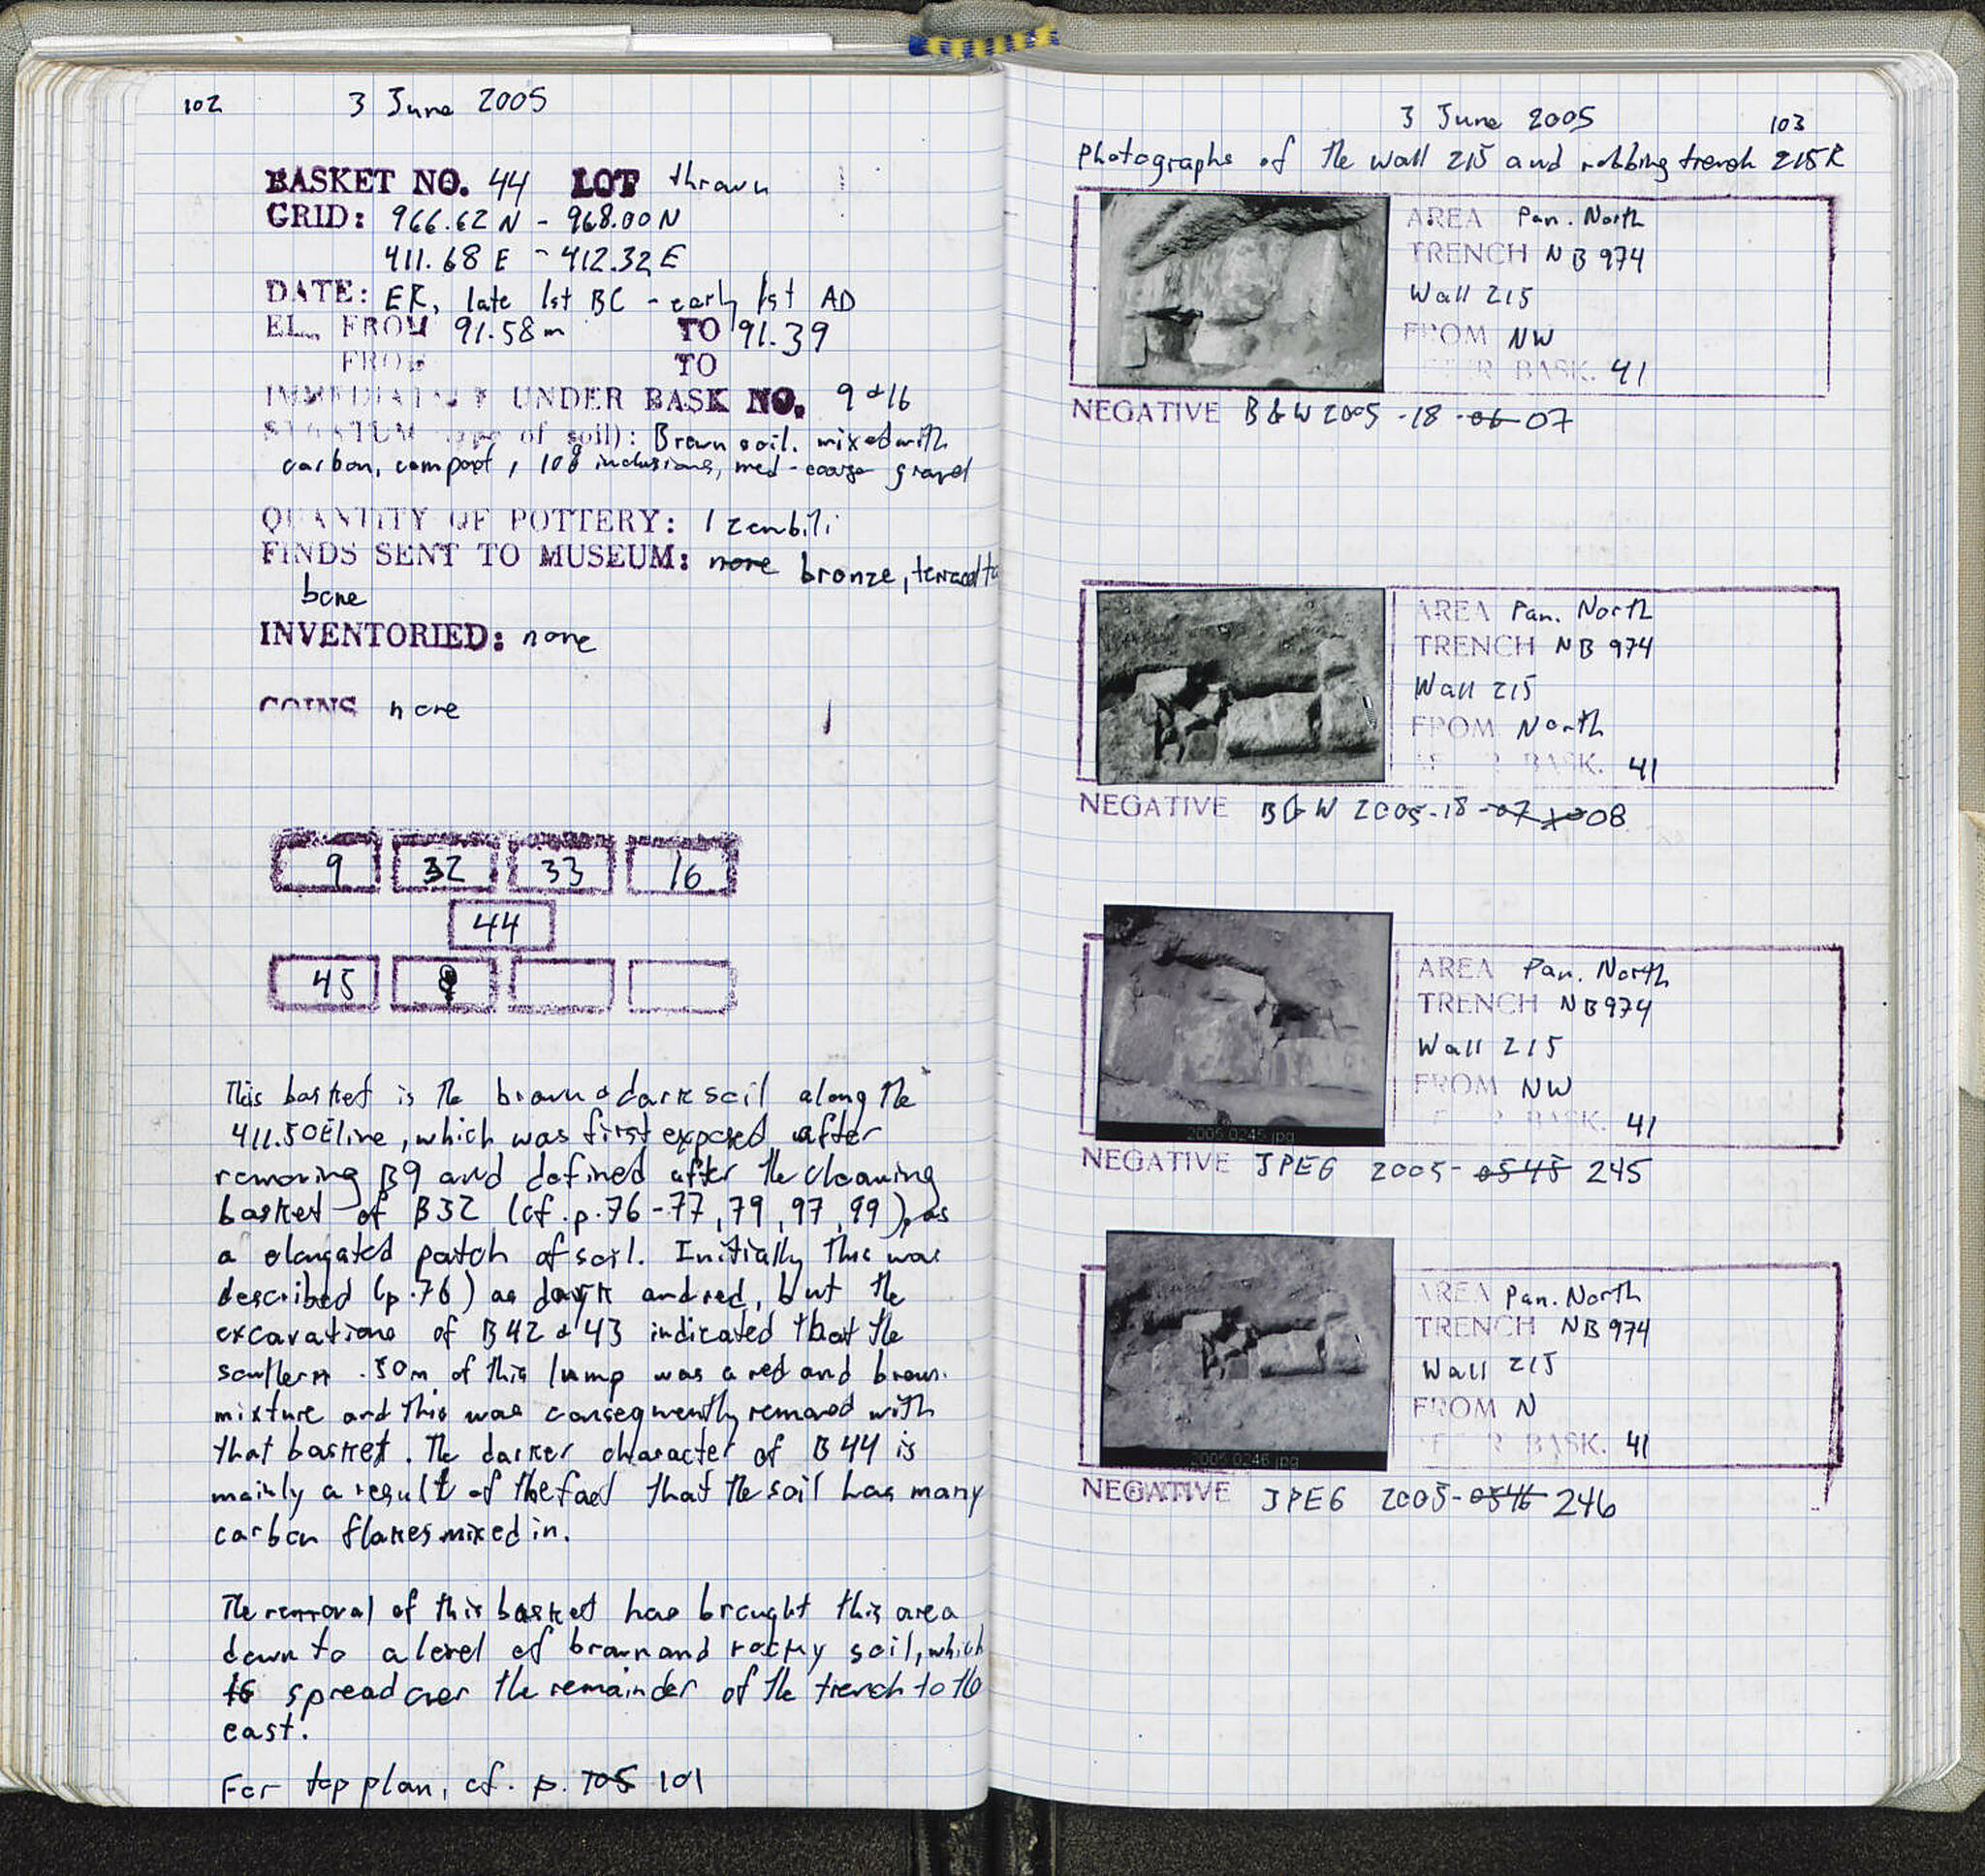 102 3 June 2005
BASKET NO. 44 LOT thrown
GRID: 966.62 N - 968.00 N
411.68 E - 412.32 E
DATE: ER, late 1st BC - early 1st AD
EL. FROM 91.58m TO 91.39
FROM TO
IMMEDIATELY UNDER BASK NO. 9 & 16
STRATUM (type of soil): Brown soil. mixed with
carbon, compact, 10% inclusions, med-coarse gravel
QUANTITY OF POTTERY: 1 zembili
FINDS SENT TO MUSEUM: none bronze, terracotta
bone
INVENTORIED: none
COINS none
9 32 33 16
44
45
This basket is the brown & dark soil along the
411.50E line, which was first exposed after
removing B9 and defined after the cleaning
basket of B32 (cf. p. 76-77, 79, 97, 99), as
a elongated patch of soil. Initially this was
described (p. 76) as dark and red, but the
excavations of B42 & 43 indicated that the
southern .50m of this lump was a red and brown
mixture and this was consequently removed with
that basket. The darker character of B44 is
mainly a result of the fact that the soil has many
carbon flakes mixed in.
The removal of this basket has brought this area
down to a level of brown and rocky soil, which
is spread over the remainder of the trench to the
east.
For top plan, cf. p. 105 101
3 June 2005 103
Photographs of the wall 215 and robbing trench 215R
AREA Pan. North
TRENCH NB 974
Wall 215
FROM NW
AFTER BASK. 41
NEGATIVE B&W 2005-18-06 07
AREA Pan. North
TRENCH NB 974
Wall 215
FROM North
AFTER BASK. 41
NEGATIVE B&W 2005-18-07 08
AREA Pan. North
TRENCH NB974
Wall 215
FROM NW
AFTER BASK. 41
2005 0245.jpg
NEGATIVE JPEG 2005-0545 245
AREA Pan. North
TRENCH NB 974
Wall 215
FROM N
AFTER BASK. 41
2005 0246.jpg
NEGATIVE JPEG 2005-0546 246